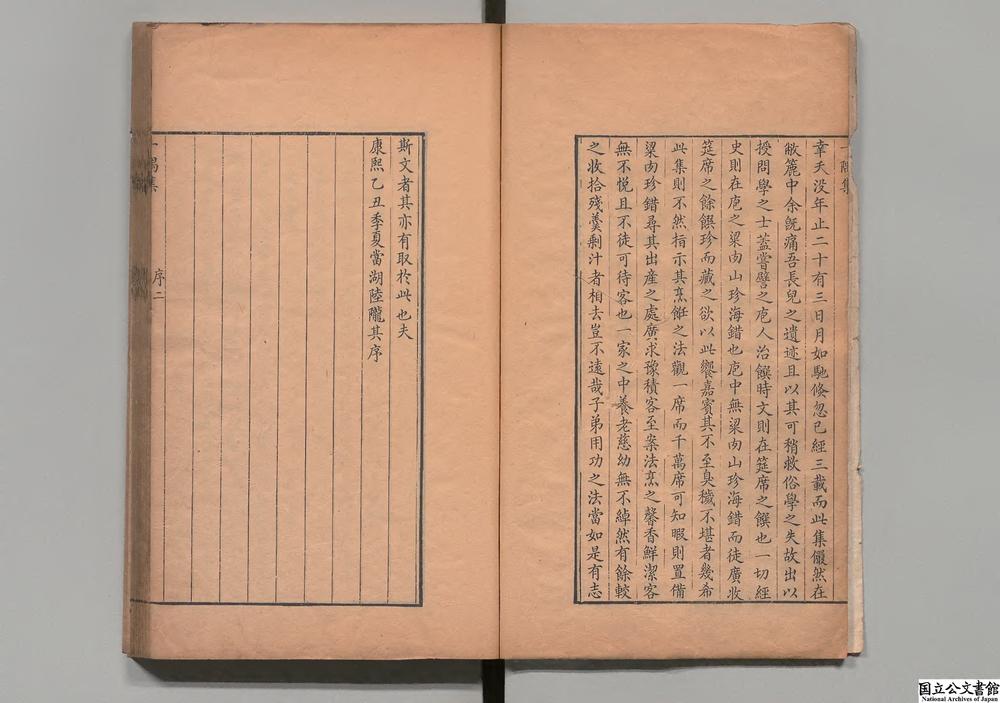 幸夭没年止二十有三日月如馳倏忽已經三載而此集儼然在
敝簏中余旣痛吾長兒之遺迹且以其可稍救俗學之失故出以
授問學之士蓋嘗譬之庖人治饌時文則在筵席之饌也一切經
史則在庖之粱肉山珍海錯也庖中無粱肉山珍海錯而徒廣收
筵席之餘饌珍而藏之欲以此饗嘉賓其不至臭穢不堪者幾希
此集則不然指示其烹飪之法觀一席而千萬席可知暇則置備
粱肉珍錯尋其出産之處廣求豫積客至案法烹之馨香鮮潔客
無不悦且不徒可待客也一家之中養老慈幼無不綽然有餘較
之收拾殘羹剩汁者相去豈不遠哉子弟用功之法當如是有志
斯文者其亦有取於此也夫
康熙乙丑季夏當湖陸隴其序
一隅集
序二
国立公文書館
National Archives of Japan